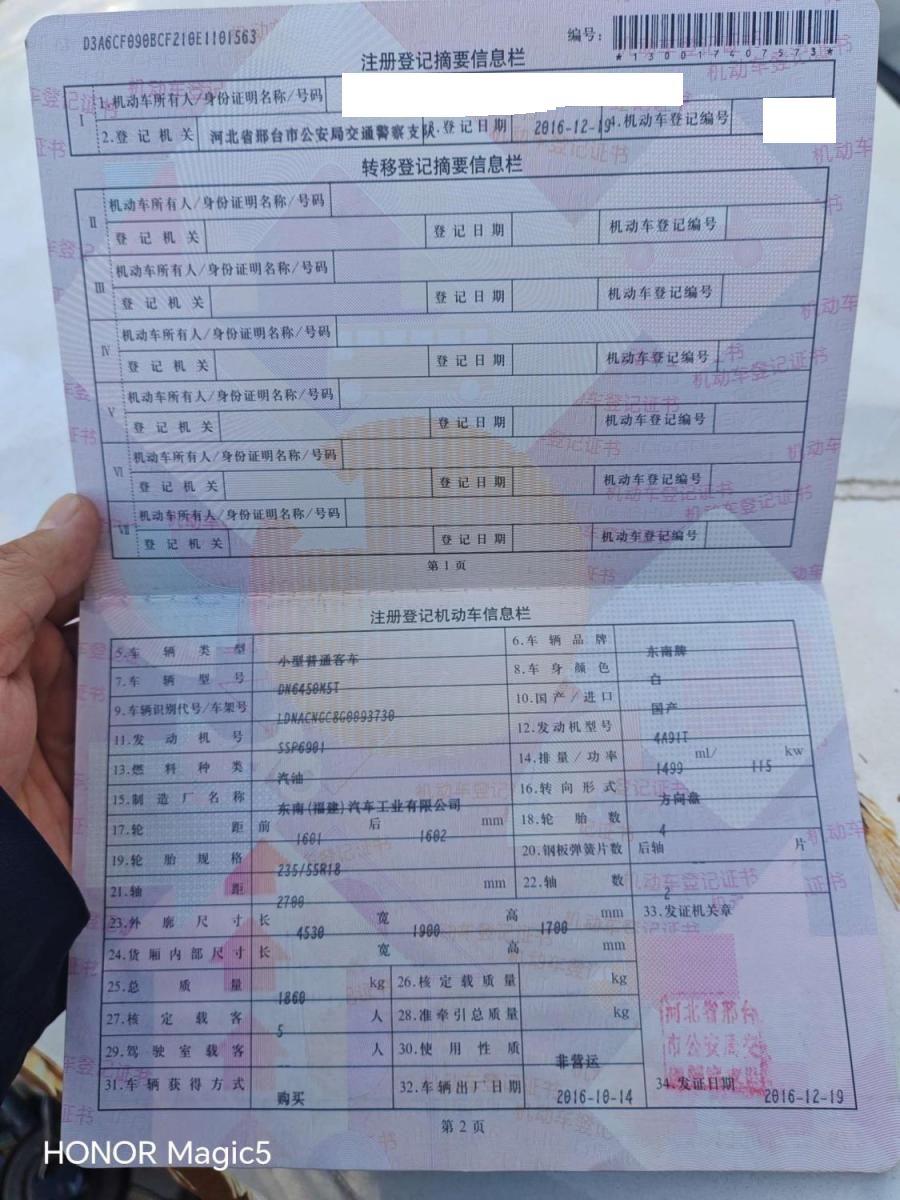 D3A6CF090BCF210E1101563
编号:
*130017407573*
注册登记摘要信息栏
I 1.机动车所有人/身份证明名称/号码
2.登记机关 河北省邢台市公安局交通警察支队 3.登记日期 2016-12-19 4.机动车登记编号
转移登记摘要信息栏
II 机动车所有人/身份证明名称/号码
登记机关 登记日期 机动车登记编号
III 机动车所有人/身份证明名称/号码
登记机关 登记日期 机动车登记编号
IV 机动车所有人/身份证明名称/号码
登记机关 登记日期 机动车登记编号
V 机动车所有人/身份证明名称/号码
登记机关 登记日期 机动车登记编号
VI 机动车所有人/身份证明名称/号码
登记机关 登记日期 机动车登记编号
VII 机动车所有人/身份证明名称/号码
登记机关 登记日期 机动车登记编号
第1页
注册登记机动车信息栏
5.车辆类型 小型普通客车 6.车辆品牌 东南牌
7.车辆型号 DN6450M5T 8.车身颜色 白
9.车辆识别代号/车架号 LDNACNGC8G0093730 10.国产/进口 国产
11.发动机号 SSP6901 12.发动机型号 4A91T
13.燃料种类 汽油 14.排量/功率 1499 ml/ 115 kw
15.制造厂名称 东南(福建)汽车工业有限公司 16.转向形式 方向盘
17.轮距 前 1601 后 1602 mm 18.轮胎数 4
19.轮胎规格 235/55R18 20.钢板弹簧片数 后轴 -- 片
21.轴距 2700 mm 22.轴数 2
23.外廓尺寸 长 4530 宽 1900 高 1700 mm 33.发证机关章
24.货厢内部尺寸 长 宽 高 mm
25.总质量 1860 kg 26.核定载质量 kg
27.核定载客 5 人 28.准牵引总质量 kg
29.驾驶室载客 -- 人 30.使用性质 非营运
31.车辆获得方式 购买 32.车辆出厂日期 2016-10-14 34.发证日期 2016-12-19
河北省邢台
市公安局交
第2页
HONOR Magic5